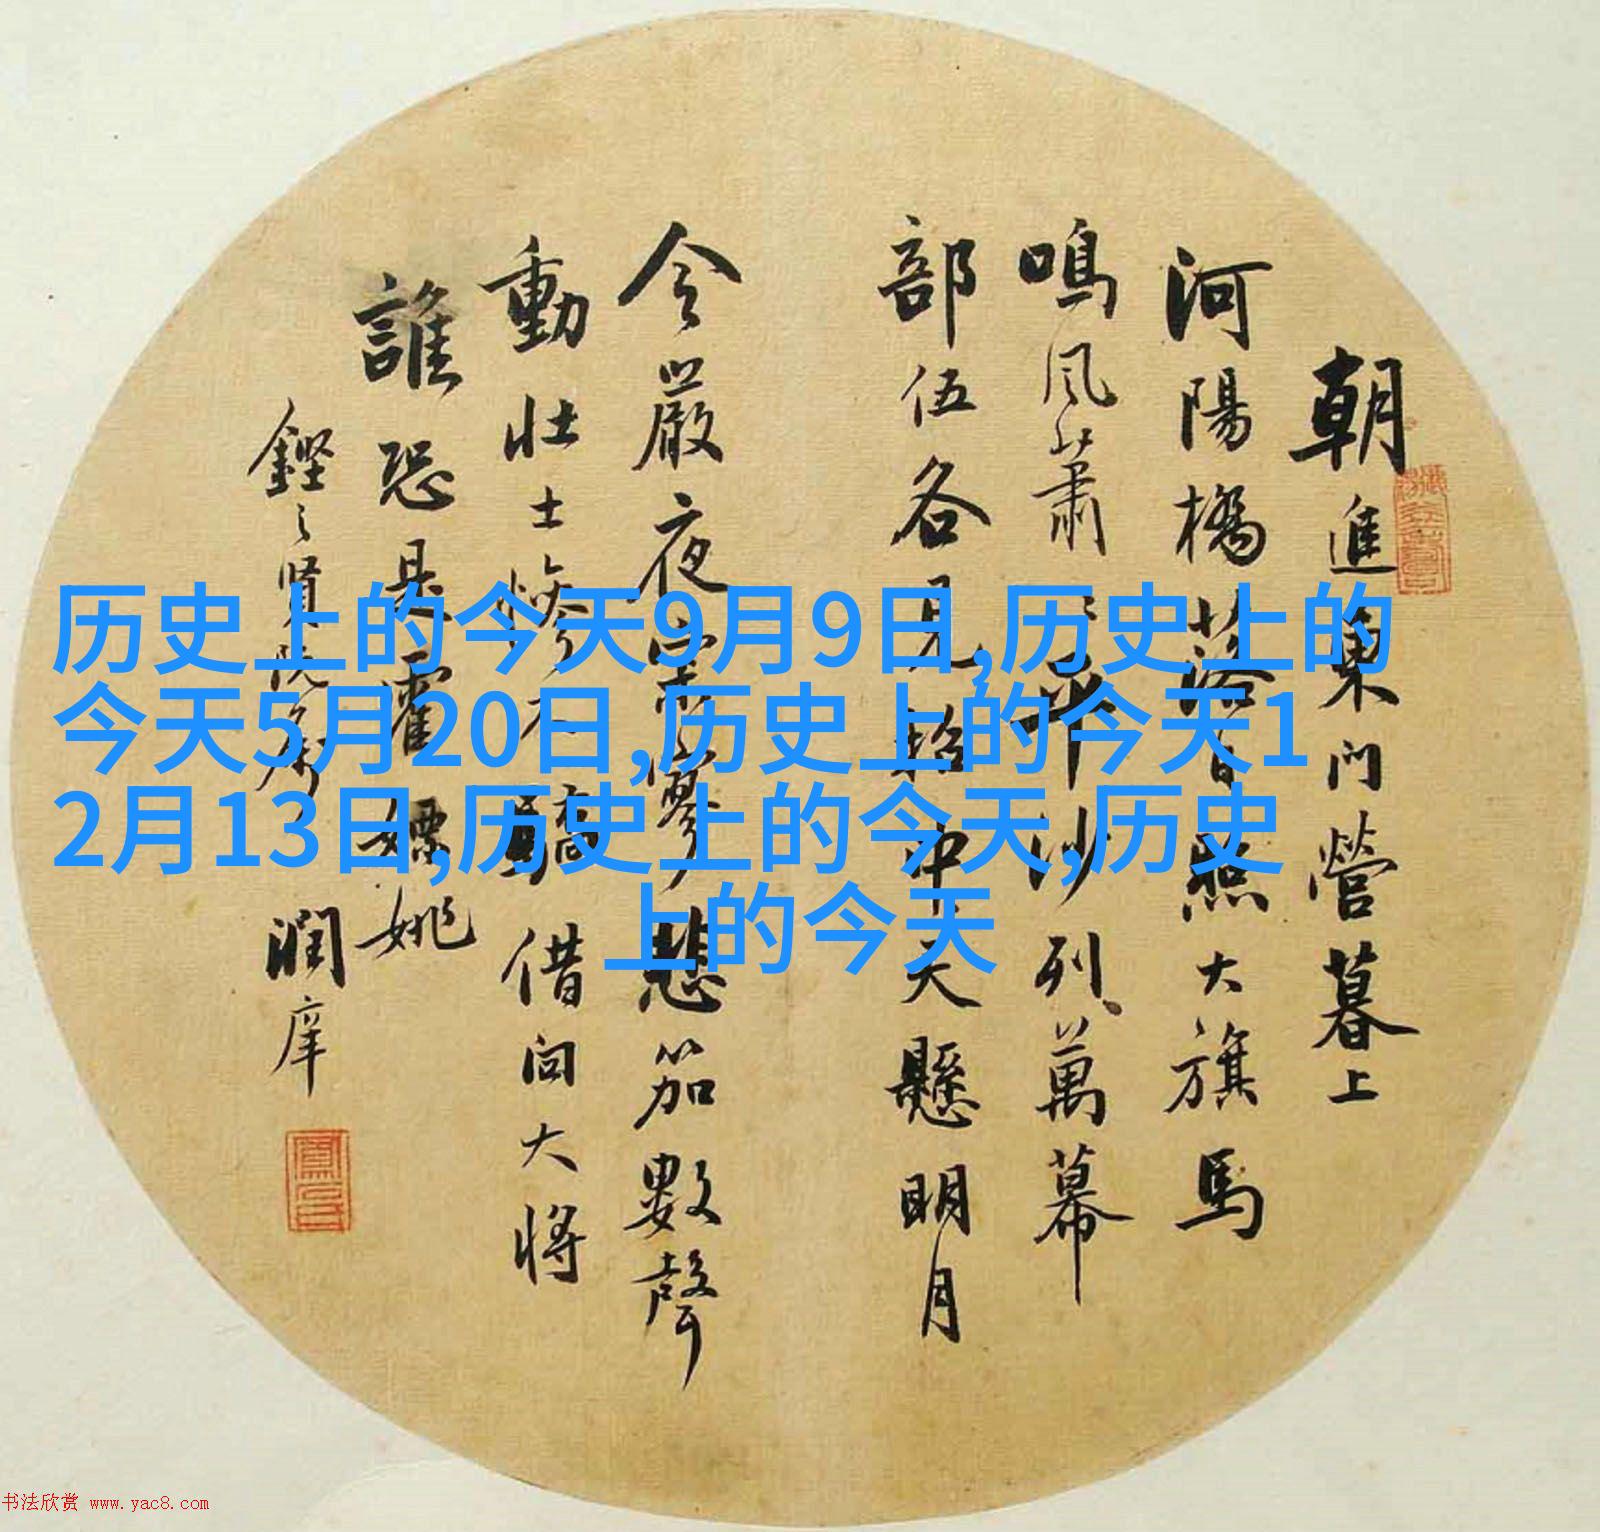 历史上的今天9月9日,历史上的
今天5月20日,历史上的今天1
2月13日,历史上的今天,历史
上的今天
朝進東門營暮上
河陽橋落日照大旗馬
鳴風蕭〻平沙列萬幕
部伍各見招中天懸明月
令嚴夜寂寥悲笳數聲
動壯士慘不驕借问大将
誰恐是霍嫖姚
賢阮属
潤庠
书法欣赏 www.yac8.com